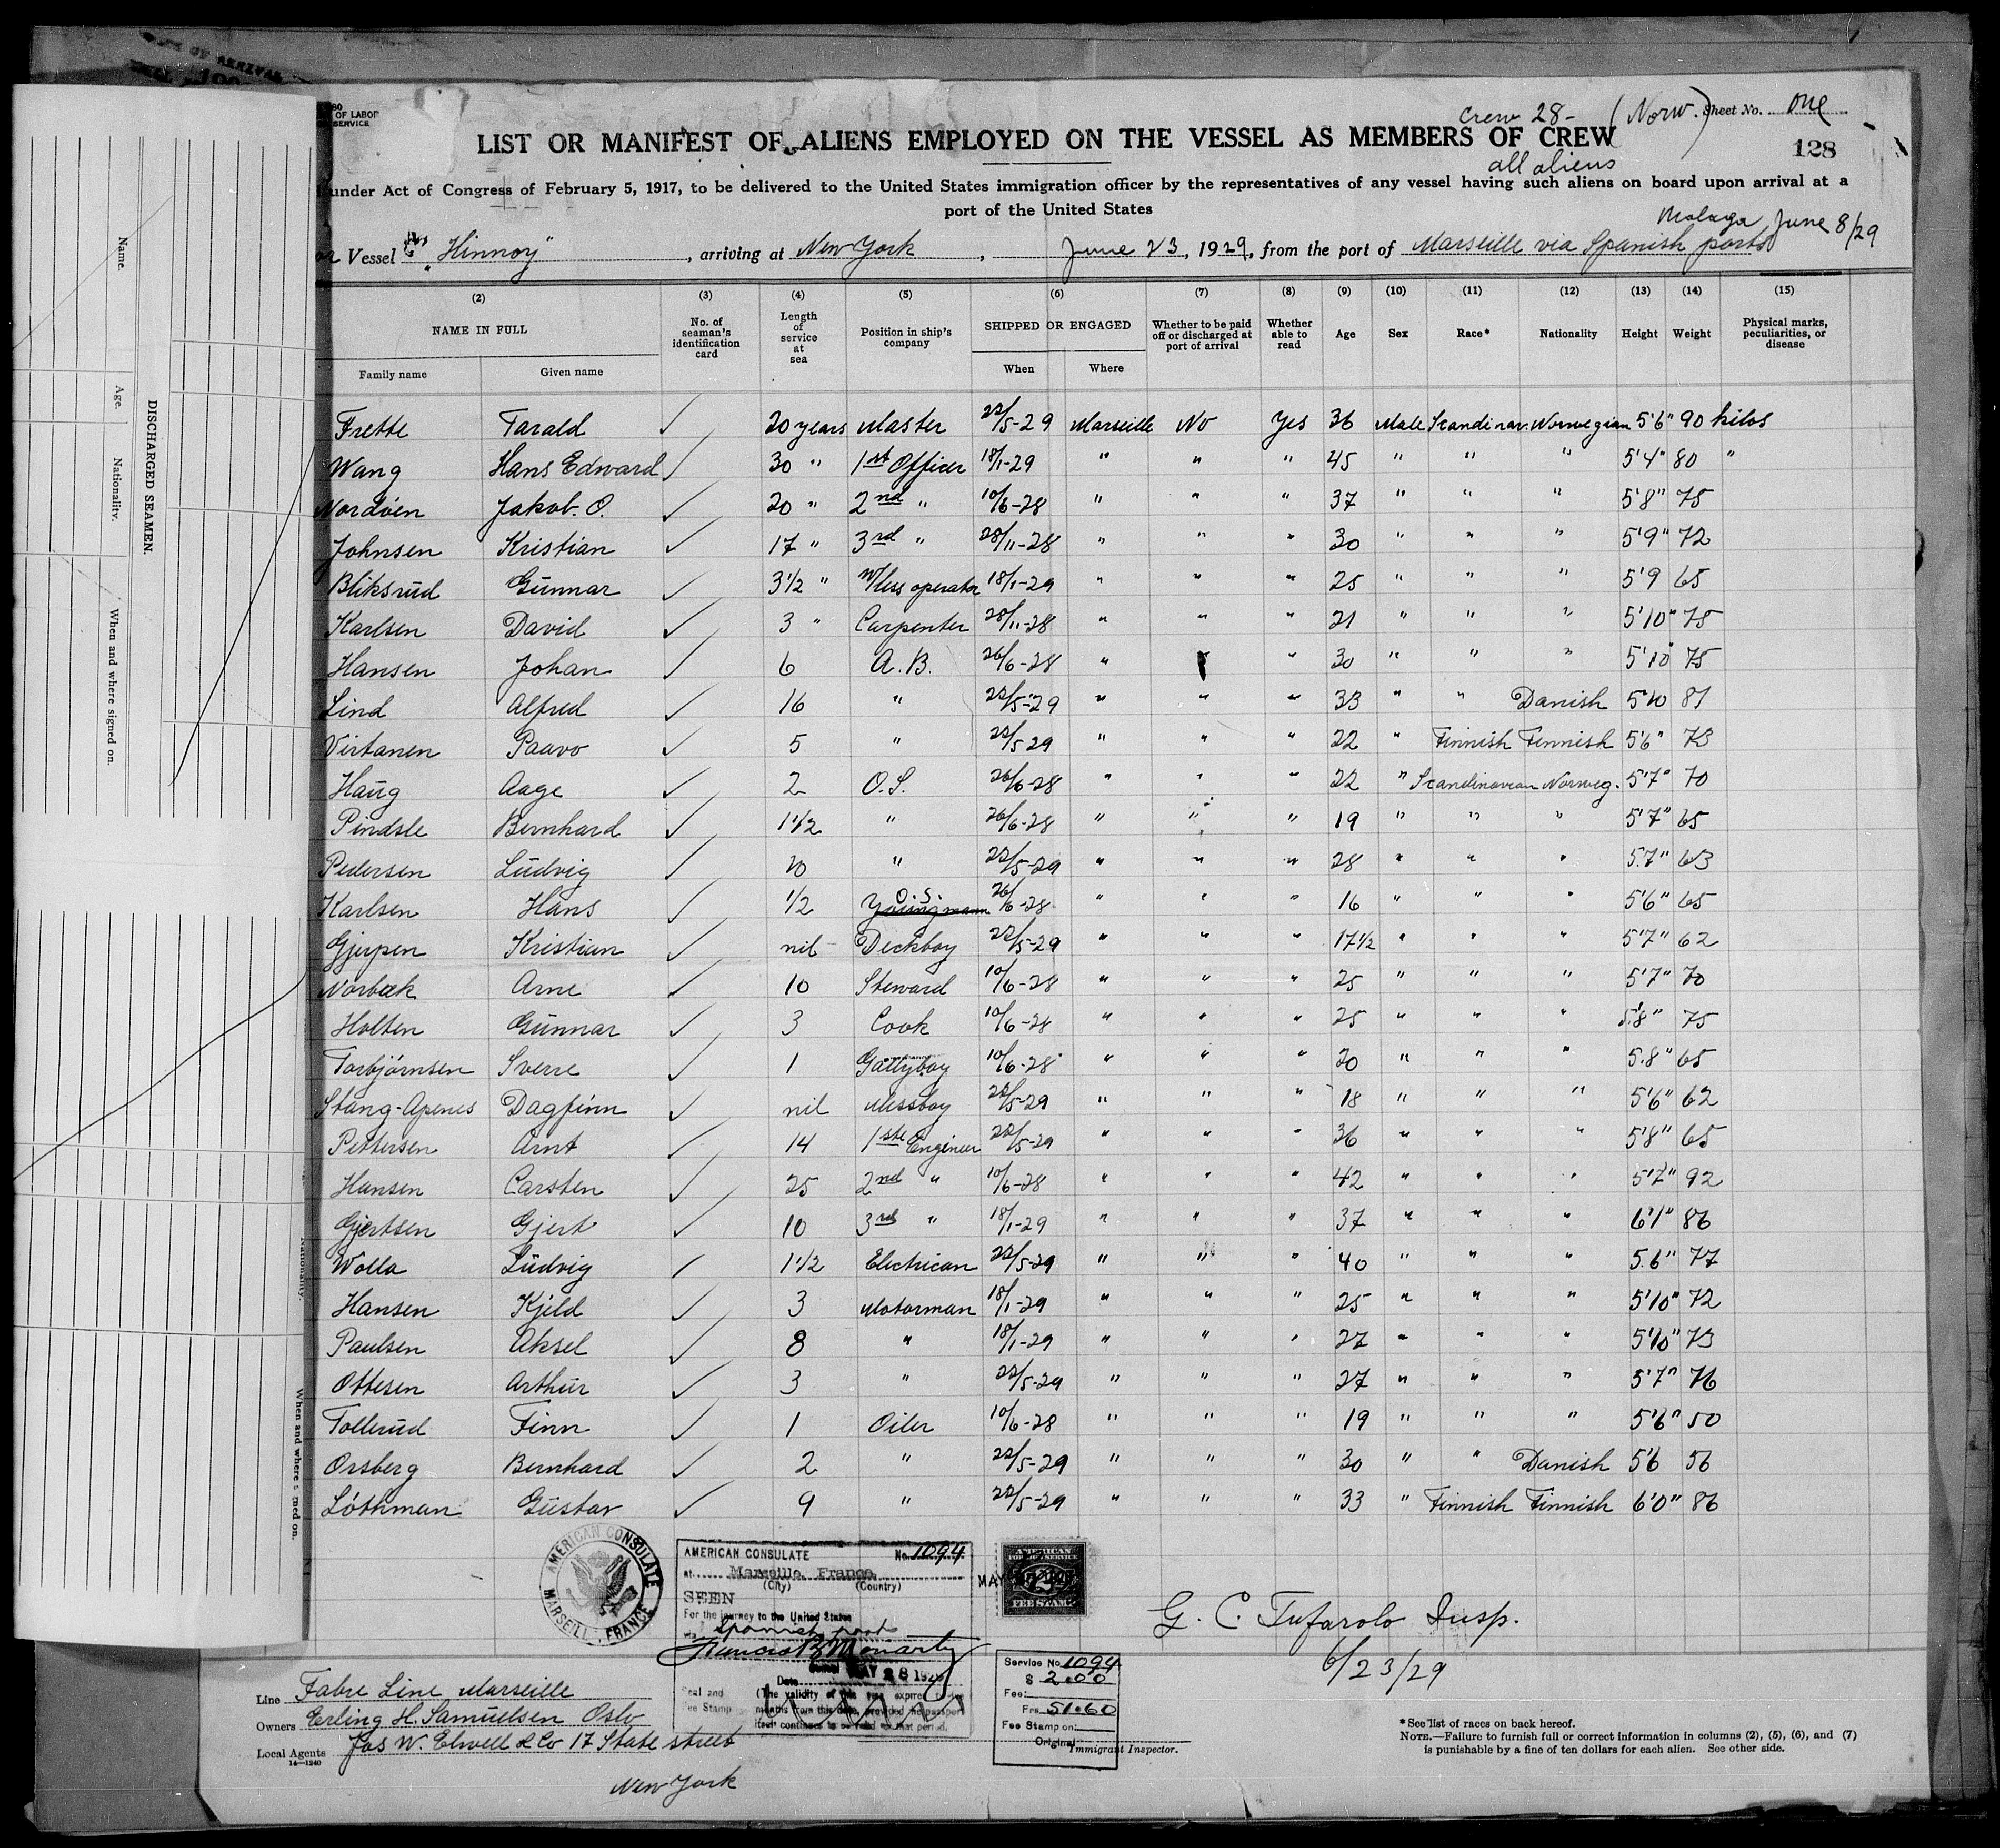 OF ARRIVAL
80
OF LABOR
SERVICE
Crew 28- (Norw.) Sheet No. one
LIST OR MANIFEST OF ALIENS EMPLOYED ON THE VESSEL AS MEMBERS OF CREW
128
all aliens
under Act of Congress of February 5, 1917, to be delivered to the United States immigration officer by the representatives of any vessel having such aliens on board upon arrival at a
port of the United States
Malaga June 8/29
Vessel "Hinnoy", arriving at New York, June 23, 1929, from the port of Marseille via Spanish ports
(2) (3) (4) (5) (6) (7) (8) (9) (10) (11) (12) (13) (14) (15)
NAME IN FULL
Family name Given name
No. of seaman's identification card
Length of service at sea
Position in ship's company
SHIPPED OR ENGAGED
When Where
Whether to be paid off or discharged at port of arrival
Whether able to read
Age Sex Race* Nationality Height Weight
Physical marks, peculiarities, or disease
Frette Tarald ✓ 20 years Master 22/5-29 Marseille No Yes 36 Male Scandinav. Norwegian 5'6" 90 kilos
Wang Hans Edward ✓ 30 " 1st Officer 18/1-29 " " " 45 " " " 5'4" 80 "
Nordöen Jakob. O. ✓ 20 " 2nd " 10/6-28 " " " 37 " " " 5'8" 75
Johnsen Kristian ✓ 17 " 3rd " 28/11-28 " " " 30 " " " 5'9" 72
Bliksrud Gunnar ✓ 3½ " W/less operator 18/1-29 " " " 25 " " " 5'9 65
Karlsen David ✓ 3 " Carpenter 28/11-28 " " " 21 " " " 5'10" 75
Hansen Johan ✓ 6 A.B. 26/6-28 " " " 30 " " " 5'10 75
Lind Alfred ✓ 16 " 22/5-29 " " " 33 " " Danish 5'10 81
Virtanen Paavo ✓ 5 " 22/5 29 " " " 22 " Finnish Finnish 5'6" 73
Haug Aage ✓ 2 O.S. 26/6-28 " " " 22 " Scandinavian Norweg. 5'7" 70
Pindsle Bernhard ✓ 1½ " 26/6-28 " " " 19 " " " 5'7" 65
Pedersen Ludvig ✓ 10 " 22/5-29 " " " 28 " " " 5.7" 63
Karlsen Hans ✓ ½ Youngmann O.S. 26/6-28 " " " 16 " " " 5'6" 65
Gjerpen Kristian ✓ nil Deckboy 22/5-29 " " " 17½ " " " 5'7" 62
Norbæk Arne ✓ 10 Steward 10/6-28 " " " 25 " " " 5'7" 70
Holten Gunnar ✓ 3 Cook 10/6-28 " " " 25 " " " 5'8" 75
Torbjørnsen Sverre ✓ 1 Galleyboy 10/6-28 " " " 20 " " " 5.8" 65
Stang-Apenes Dagfinn ✓ nil Messboy 22/5-29 " " " 18 " " " 5'6" 62
Pettersen Arnt ✓ 14 1ste Engineer 22/5-29 " " " 36 " " " 5'8" 65
Hansen Carsten ✓ 25 2nd " 10/6-28 " " " 42 " " " 5'7" 92
Gjertsen Gjert ✓ 10 3rd " 18/1-29 " " " 37 " " " 6'1" 86
Wolla Ludvig ✓ 1½ Electrican 22/5-29 " " " 40 " " " 5.6" 77
Hansen Kjeld ✓ 3 Motorman 18/1-29 " " " 25 " " " 5'10" 72
Paulsen Aksel ✓ 8 " 18/1-29 " " " 27 " " " 5'10" 73
Ottesen Arthur ✓ 3 " 22/5-29 " " " 27 " " " 5'7" 76
Tollerud Finn ✓ 1 Oiler 10/6-28 " " " 19 " " " 5'6" 50
Orsberg Bernhard ✓ 2 " 22/5-29 " " " 30 " " Danish 5'6 56
Löthman Gustav ✓ 9 " 22/5-29 " " " 33 " Finnish Finnish 6'0" 86
AMERICAN CONSULATE
MARSEILLE, FRANCE
AMERICAN CONSULATE No. 1094
at Marseille, France
(City) (Country)
SEEN
For the journey to the United States
via Spanish port
Francis R Moriarty
Date MAY 28 1929
Seal and
Fee Stamp
(The validity of this expires
months from this date, provided the passport
itself continues to be valid for that period.
AMERICAN
FOREIGN SERVICE
FEE STAMP
Service No. 1094
Fee: $ 2.00
Frs. 51.60
Fee Stamp on
Original
G. C. Tufarolo Insp.
6/23/29
Immigrant Inspector.
Line Fabre Line Marseille
Owners Erling H. Samuelsen Oslo
Local Agents Jas W. Elwell & Co 17 State street
New York
14-1240
*See list of races on back hereof.
NOTE.—Failure to furnish full or correct information in columns (2), (5), (6), and (7)
is punishable by a fine of ten dollars for each alien. See other side.
DISCHARGED SEAMEN.
Name. Age. Nationality. When and where signed on.
Nationality.
When and where signed on.